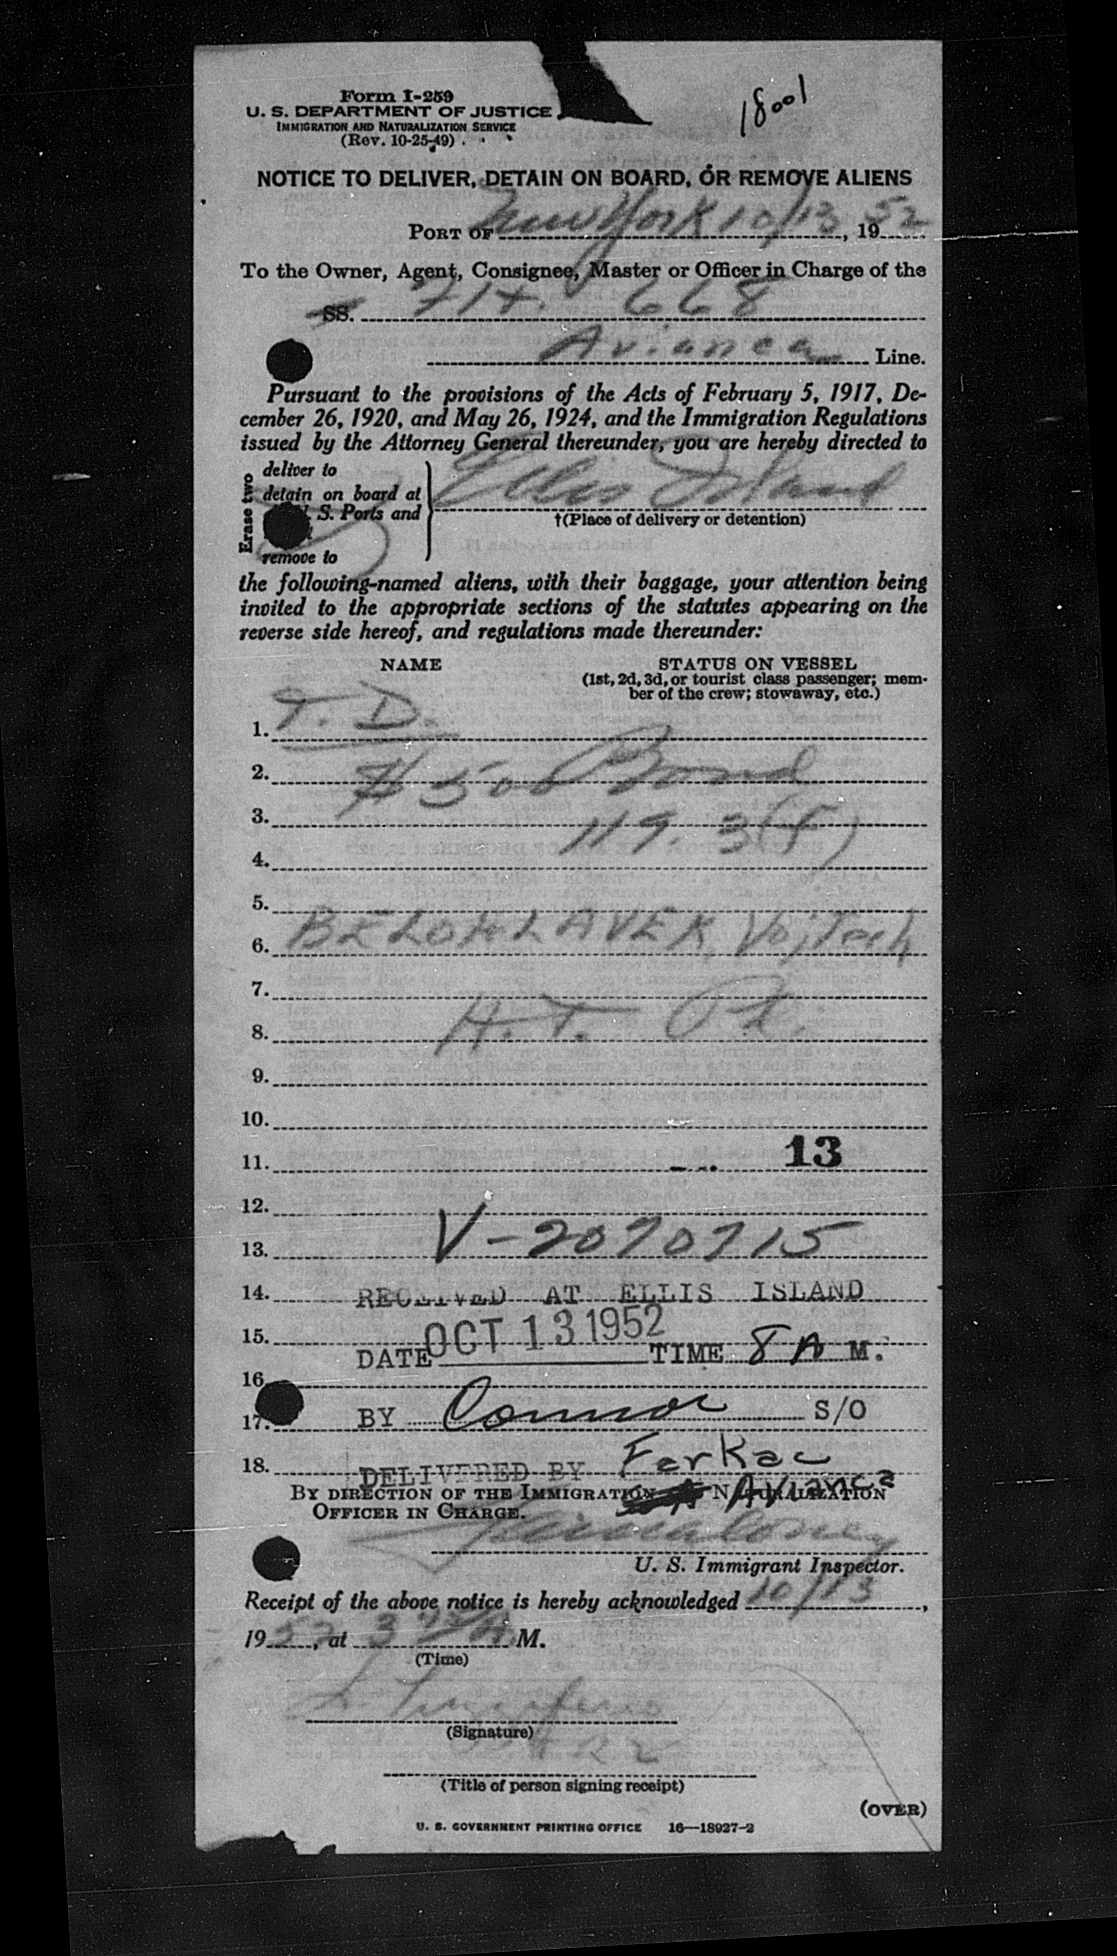 18001
Form I-259
U. S. DEPARTMENT OF JUSTICE
IMMIGRATION AND NATURALIZATION SERVICE
(Rev. 10-25-49)
NOTICE TO DELIVER, DETAIN ON BOARD, OR REMOVE ALIENS
PORT OF New York 10/13, 1952
To the Owner, Agent, Consignee, Master or Officer in Charge of the
SS. Flt. 668
Avianca Line.
Pursuant to the provisions of the Acts of February 5, 1917, De-
cember 26, 1920, and May 26, 1924, and the Immigration Regulations
issued by the Attorney General thereunder, you are hereby directed to
Erase two
deliver to
detain on board at Ellis Island
S. Ports and
†(Place of delivery or detention)
remove to
the following-named aliens, with their baggage, your attention being
invited to the appropriate sections of the statutes appearing on the
reverse side hereof, and regulations made thereunder:
NAME STATUS ON VESSEL
(1st, 2d, 3d, or tourist class passenger; mem-
ber of the crew; stowaway, etc.)
1. T. D.
2. $500 Bond
3. 119. 3(f)
4.
5.
6. BELOHLAVEK, Vojtech
7.
8. H. T.
9.
10.
11. 13
12.
13. V-2070715
14. RECEIVED AT ELLIS ISLAND
15. DATE OCT 13 1952 TIME 8 A M.
16.
17. BY Connor S/O
18. DELIVERED BY Farkac
Avianca
BY DIRECTION OF THE IMMIGRATION NATURALIZATION
OFFICER IN CHARGE.
U. S. Immigrant Inspector.
Receipt of the above notice is hereby acknowledged 10/13,
1952, at 3 A. M.
(Time)
(Signature)
(Title of person signing receipt)
(OVER)
U. S. GOVERNMENT PRINTING OFFICE 16—18927-2